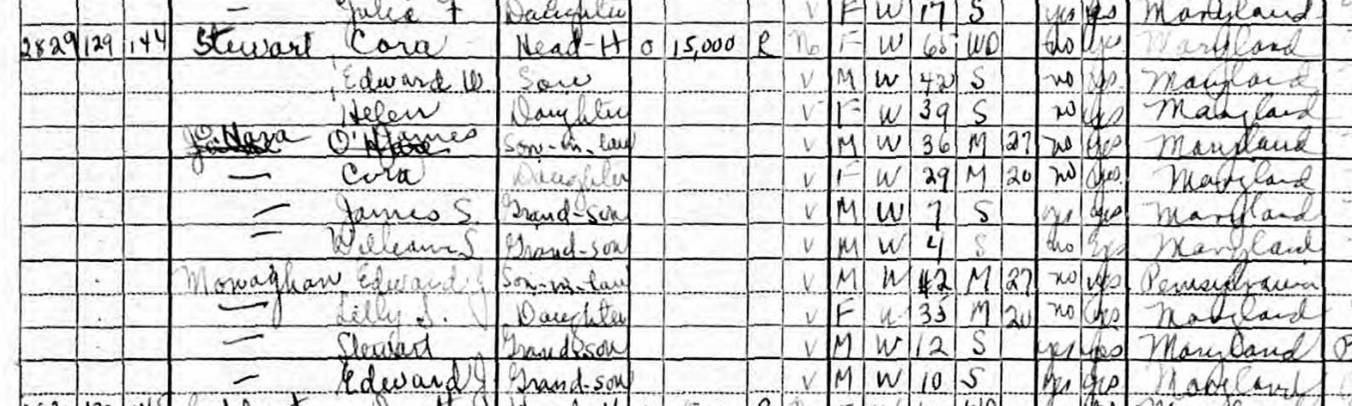 — Julie F Daughter V F W 17 S yes yes Maryland
2829 129 144 Stewart Cora Head-H O 15,000 R No F W 65 WD no yes Maryland
Edward W Son V M W 42 S no yes Maryland
Helen Daughter V F W 39 S no yes Maryland
O'Hara James Son-in-law V M W 36 M 27 no yes Maryland
— Cora Daughter V F W 29 M 20 no yes Maryland
— James S. Grand-son V M W 7 S yes yes Maryland
— William S Grand-son V M W 4 S no yes Maryland
Monaghan Edward J Son-in-law V M W 42 M 27 no yes Pennsylvania
— Lilly S. Daughter V F W 35 M 20 no yes Maryland
— Stewart Grandson V M W 12 S yes yes Maryland
— Edward J Grand-son V M W 10 S yes yes Maryland